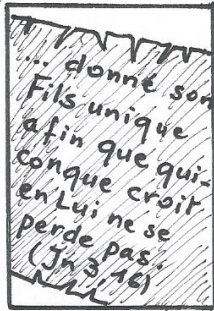 ... donné son
Fils unique
afin que qui-
conque croit
en Lui ne se
perde pas.
(Jn 3, 16)